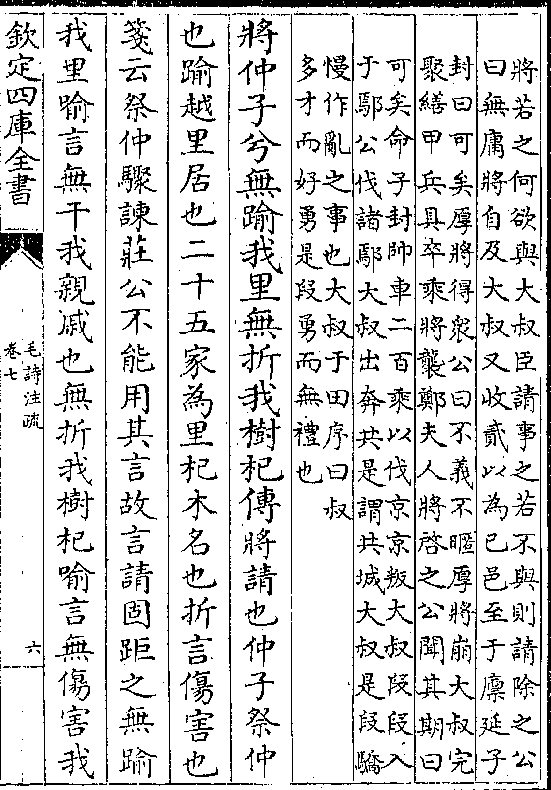 將若之何欲與大叔臣請事之若不與則請除之公
曰無庸將自及大叔又收貳以為己邑至于廩延子
封曰可矣厚將得衆公曰不義不暱厚將崩大叔完
聚繕甲兵具卒乘將襲鄭夫人將啓之公聞其期曰
可矣命子封帥車二百乘以伐京京叛大叔段段入
于鄢公伐諸鄢大叔出奔共是謂共城大叔是段驕
慢作亂之事也大叔于田序曰叔
多才而好勇是段勇而無禮也
將仲子兮無踰我里無折我樹杞傳將請也仲子祭仲
也踰越里居也二十五家為里杞木名也折言傷害也
箋云祭仲驟諫莊公不能用其言故言請固距之無踰
我里踰言無干我親戚也無折我樹杞喻言無傷害我
欽定四庫全書
毛詩注疏
卷七
六